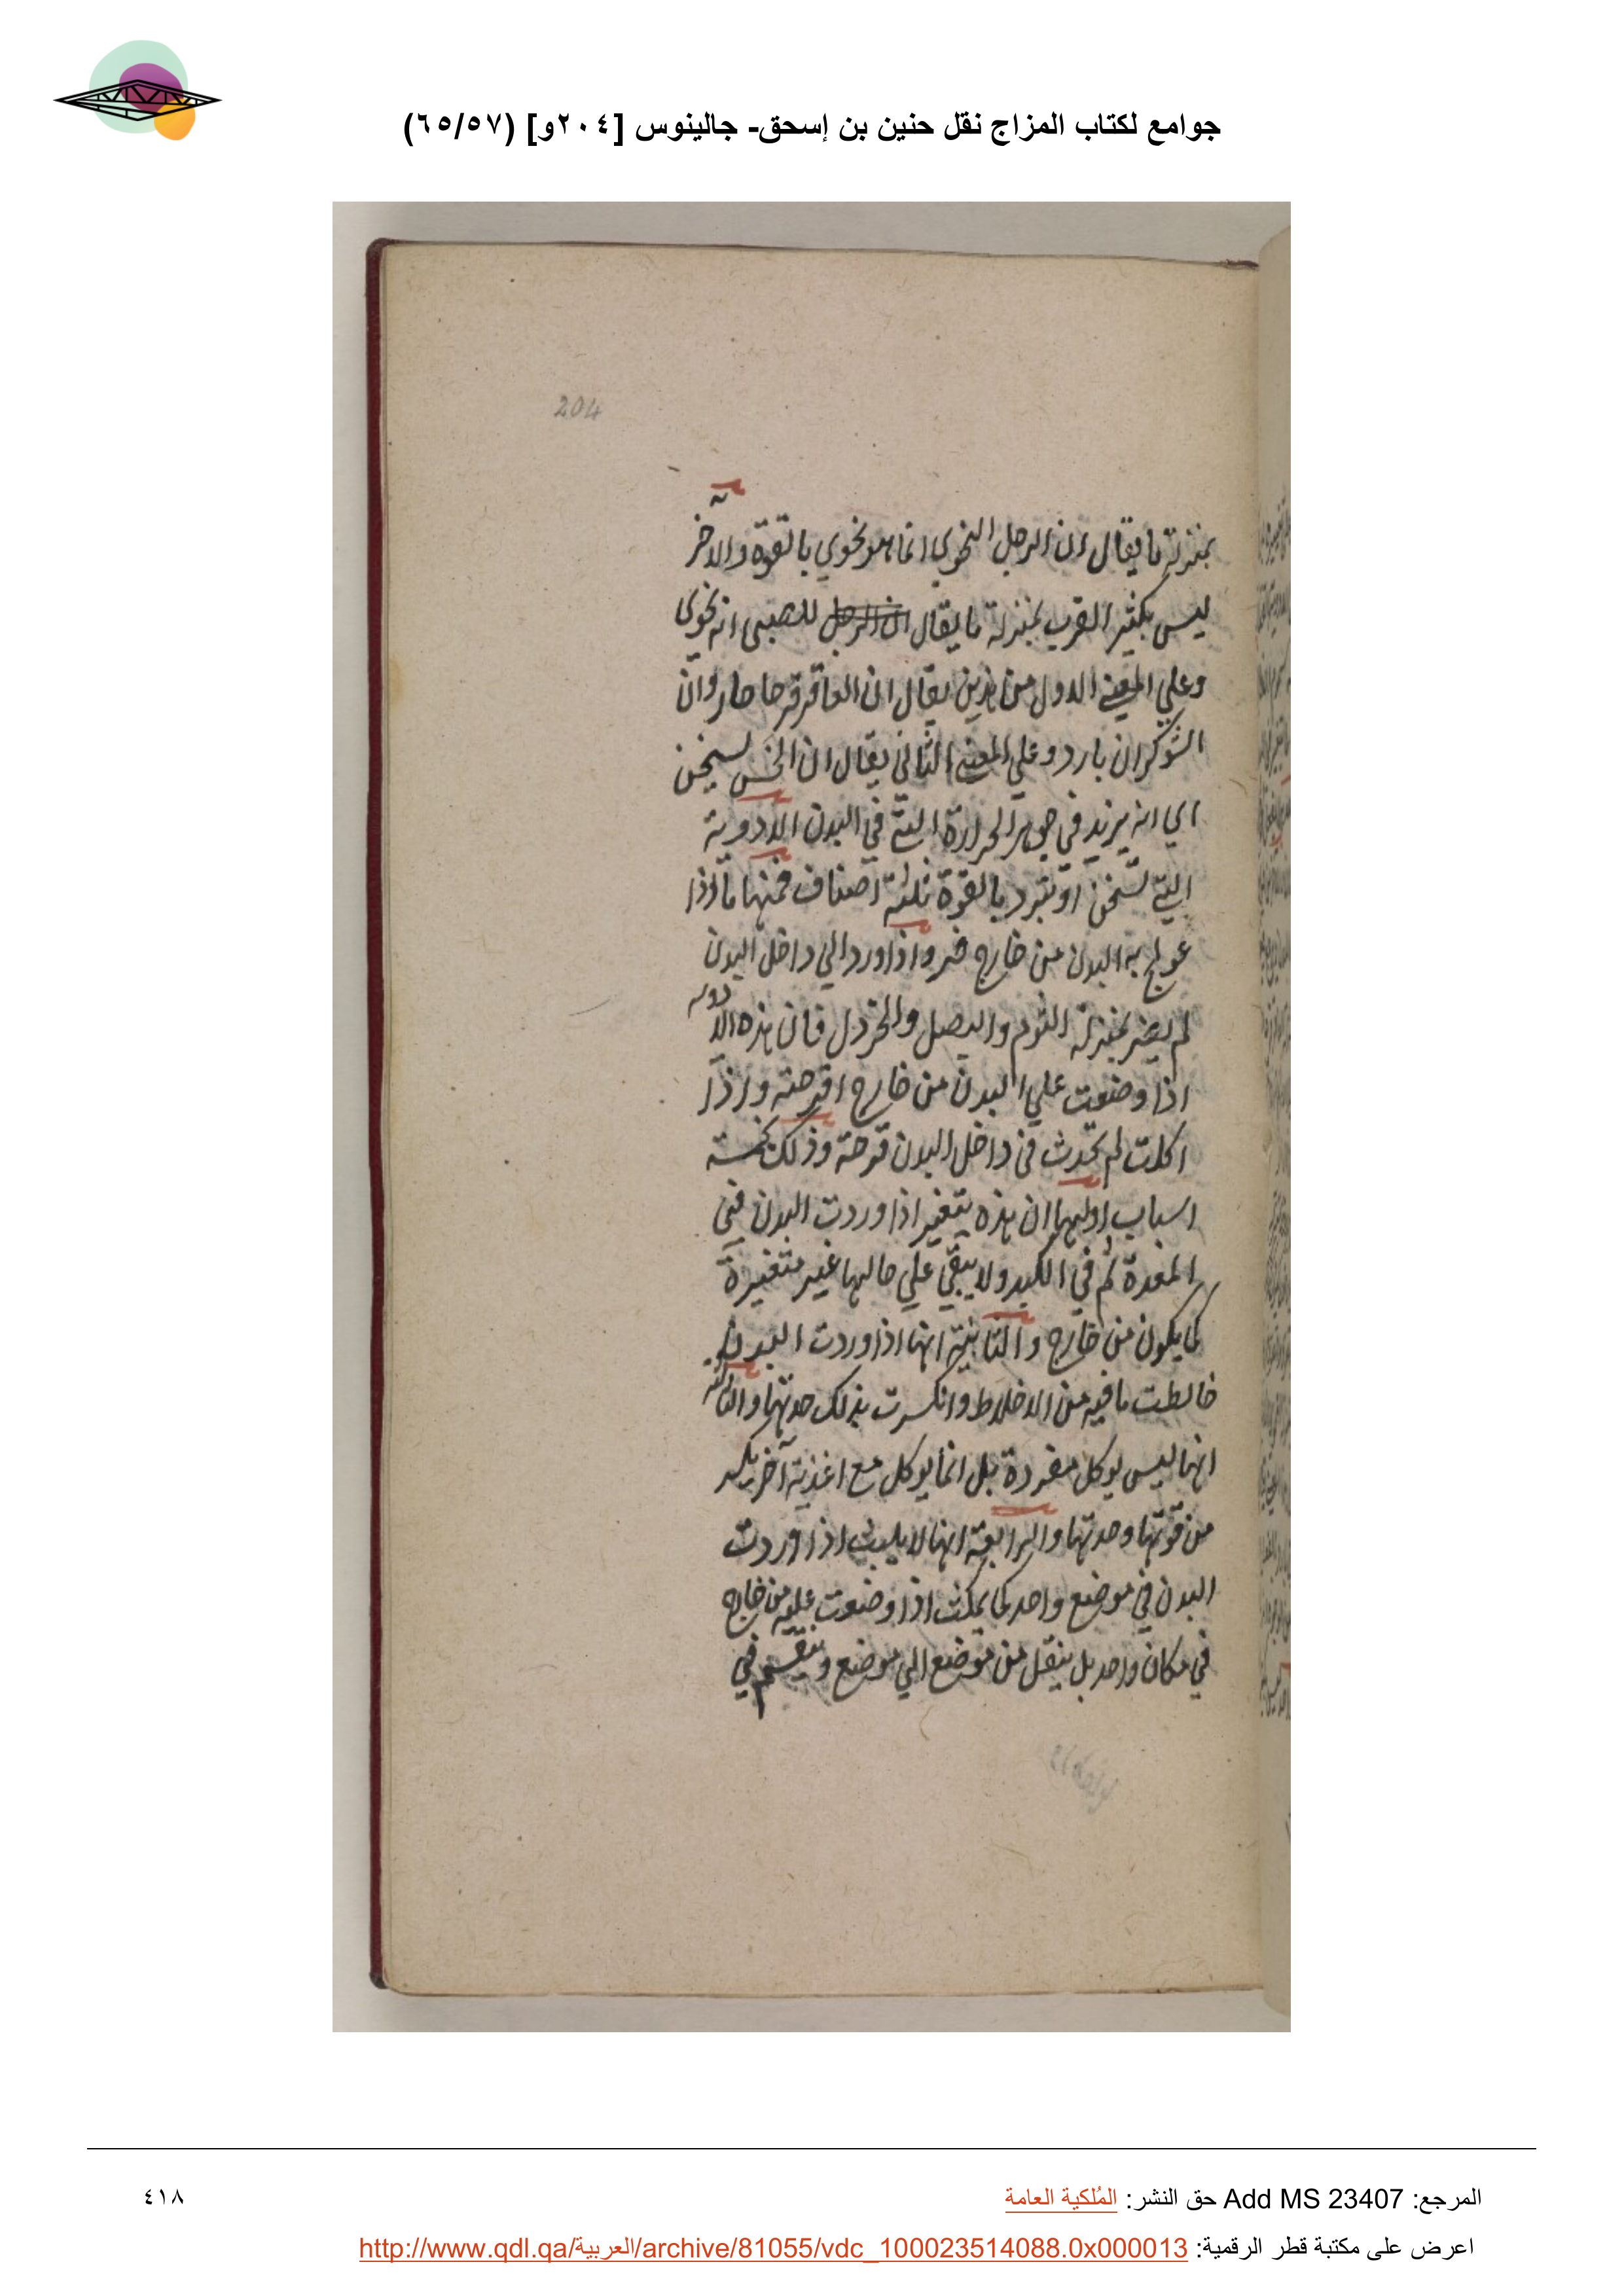 جوامع لكتاب المزاج نقل حنين بن إسحق- جالينوس [٢٠٤و] (٦٥/٥٧)
204
بمنزلة ما يقال ان الرجل النحوي انما هو نحوي بالقوة والآخر
ليس بكثير القرب بمنزلة ما يقال ان الرجل للصبي انه نحوي
وعلي المعني الاول من هذين يقال ان العاقرقرحا حار وان
الشوكران بارد وعلي المعني الثاني يقال ان الخس يسخن
اي انه يزيد في جوهر الحرارة التي في البدن الادوية
التي تسخن او تبرد بالقوة ثلثة اصناف فمنها ما اذا
عولج به البدن من خارج ضر واذا ورد الي داخل البدن
لم يضر بمنزلة الثوم والبصل والخردل فان هذه الادوية
اذا وضعت علي البدن من خارج اقرحته واذا
اكلت لم تحدث في داخل البدن قرحة وذلك لخمسة
اسباب اولها ان هذه يتغير اذا وردت البدن في
المعدة ثم في الكبد ولا يبقي علي حالها غير متغيرة
كما يكون من خارج والثانية انها اذا وردت البدن
خالطت ما فيه من الاخلاط وانكسرت بذلك حدتها والثالثة
انها ليس يوكل مفردة بل انما يوكل مع اغذية آخر يكسر
من قوتها وحدتها والرابعة انها لا يلبث اذا وردت
البدن في موضع واحد كما يمكث اذا وضعت عليه من خارج
في مكان واحد بل ينتقل من موضع الي موضع وينقسم في
المرجع: Add MS 23407 حق النشر: المُلكية العامة
٤١٨
اعرض على مكتبة قطر الرقمية: http://www.qdl.qa/العربية/archive/81055/vdc_100023514088.0x000013